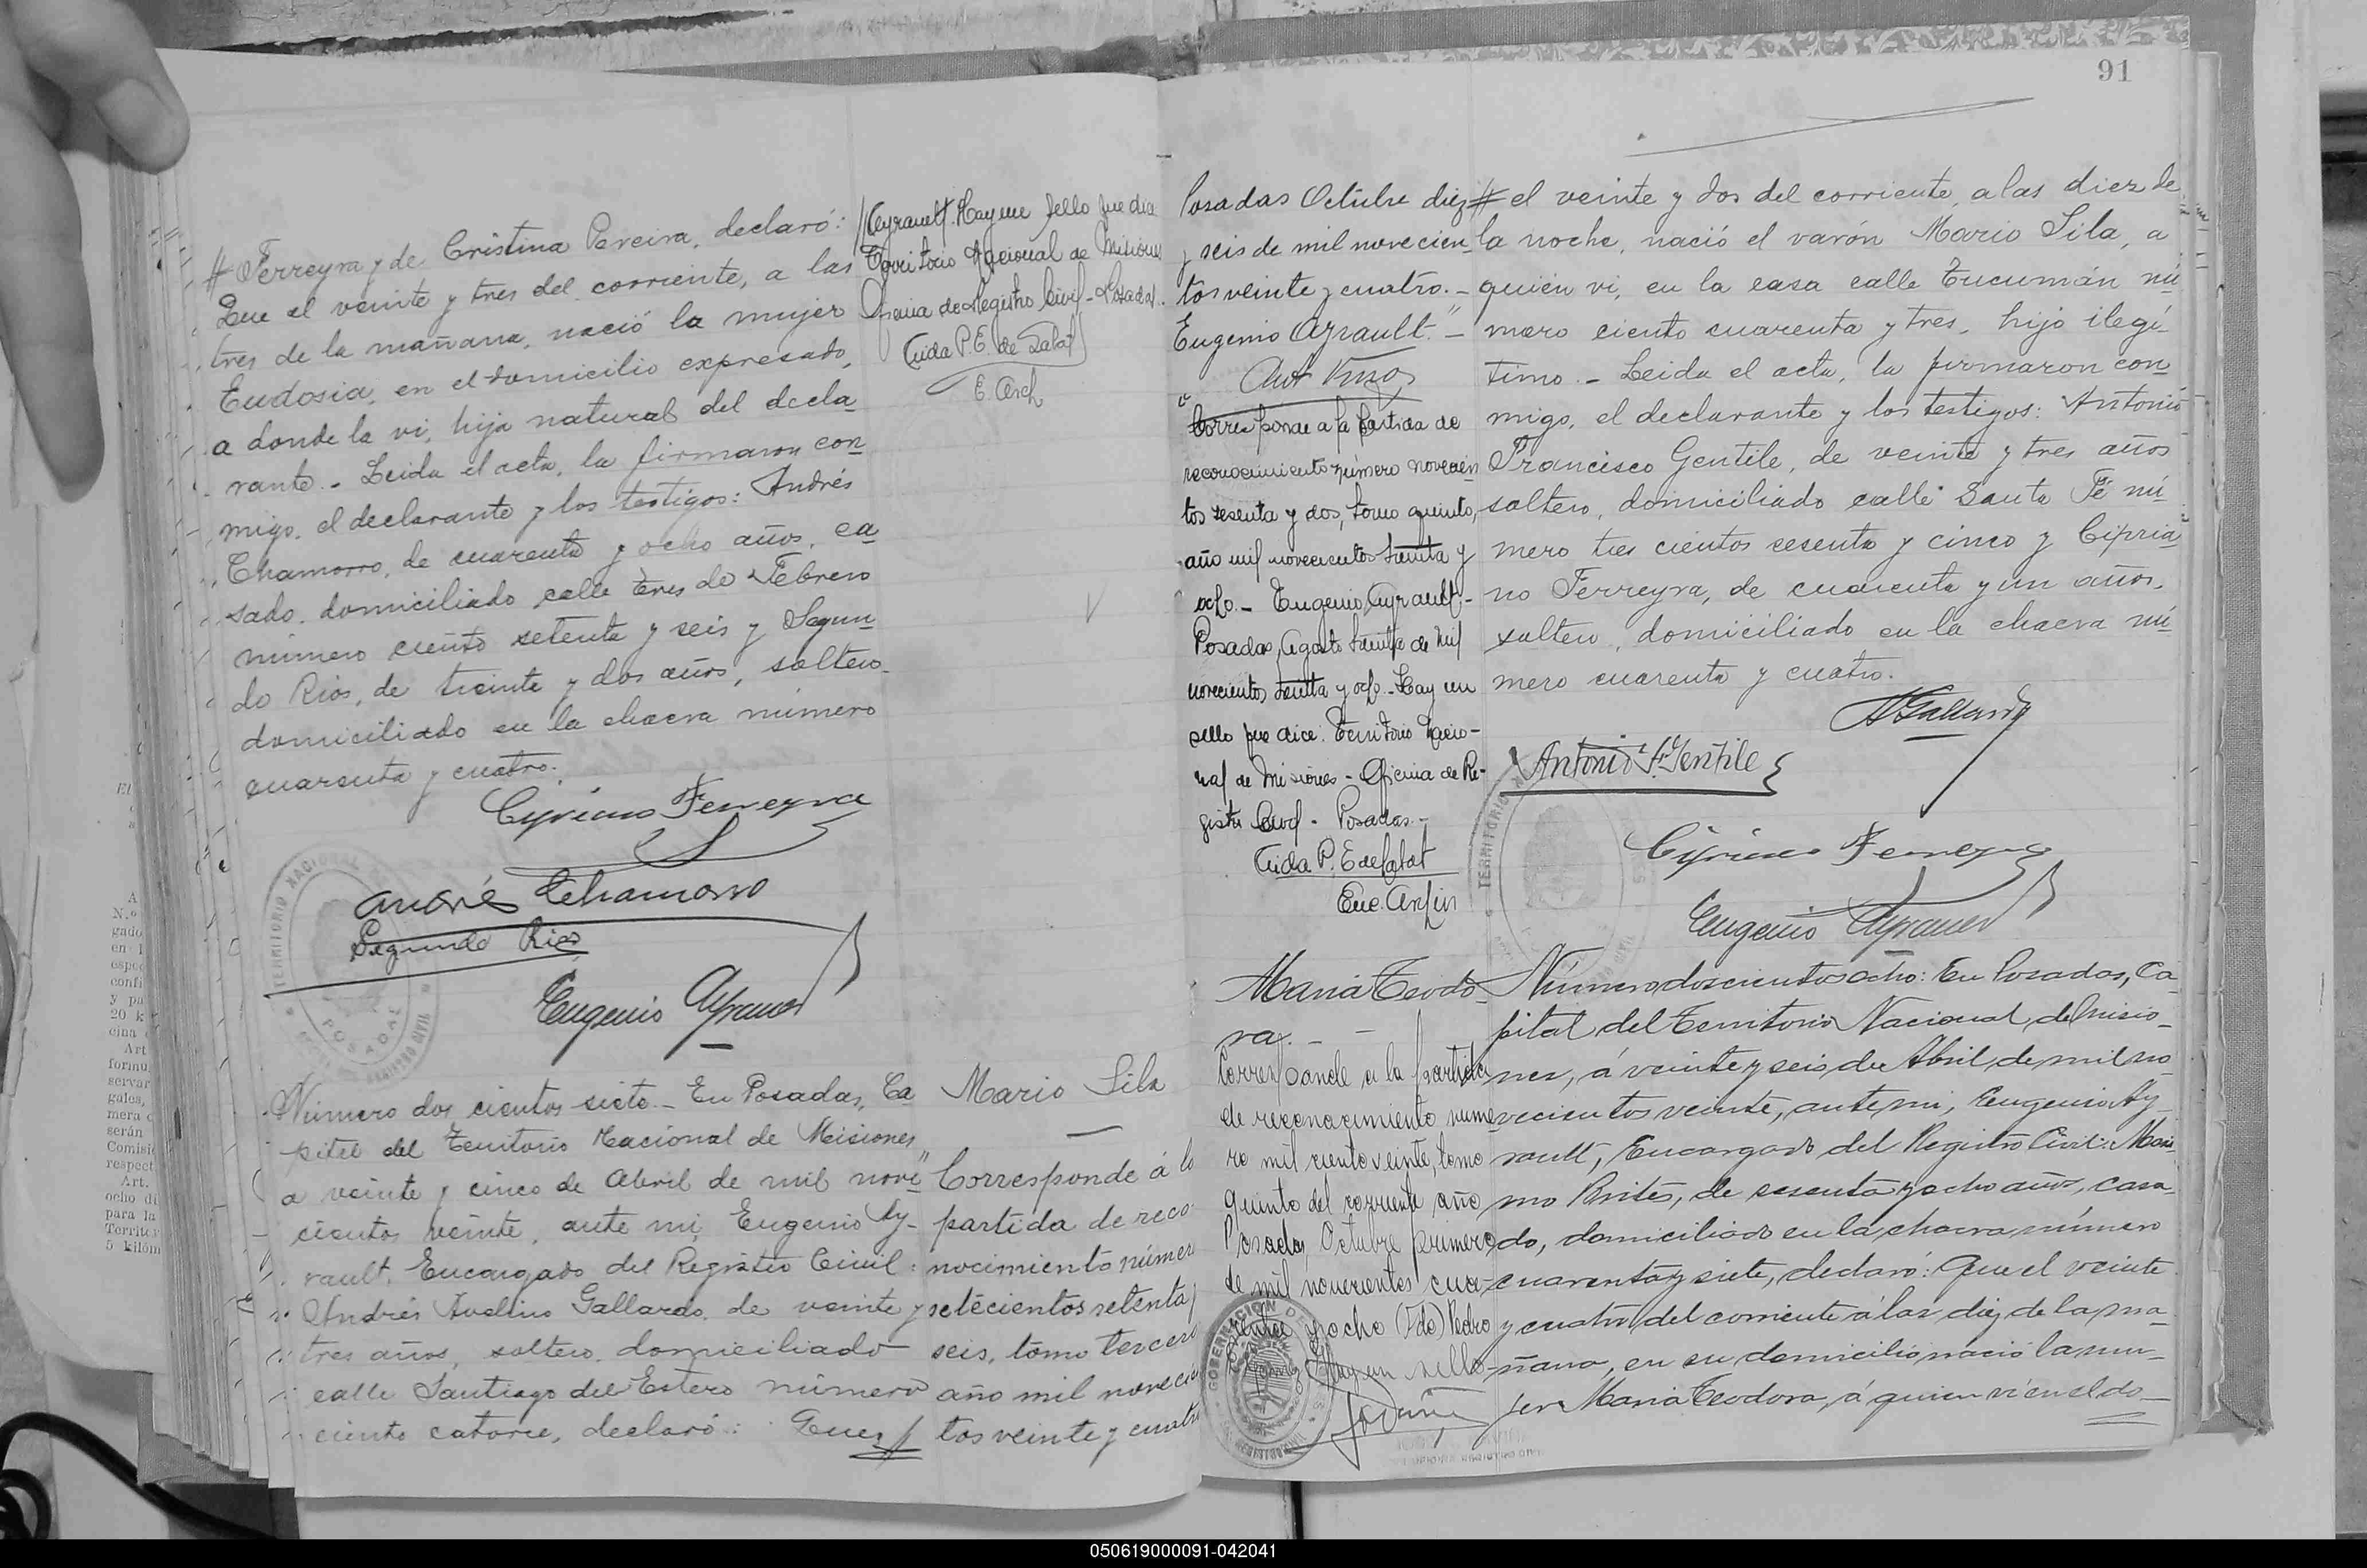 # Ferreyra y de Cristina Pereira, declaró:
Que el veinte y tres del corriente, a las
tres de la mañana, nació la mujer
Eudosia, en el domicilio expresado,
a donde la vi, hija natural del decla
rante.- Leida el acta, la firmaron con
migo, el declarante y los testigos: Andrés
Chamorro, de cuarenta y ocho años, ca
sado, domiciliado calle tres de Febrero
número ciento setenta y seis y Segun
do Rios, de treinta y dos años, soltero
domiciliado en la chacra número
cuarenta y cuatro.
Cipriano Ferreyra
Andrés Chamorro
Segundo Rios
Eugenio Ayrault
TERRITORIO NACIONAL
POSADAS
REGISTRO CIVIL
Hay un sello que dice
Territorio Nacional de Misiones
Oficina de Registro Civil - Posadas.
Aida P. E. de
E. Arch
Número dos cientos siete.- En Posadas, Ca
pital del Territorio Nacional de Misiones,
a veinte y cinco de Abril de mil nove
cientos veinte, ante mi, Eugenio Ay-
rault, Encargado del Registro Civil:
Andrés Avelino Gallardo, de veinte y
tres años, soltero, domiciliado
calle Santiago del Estero número
ciento catorce, declaró: Que #
Mario Sila
"Corresponde á la
partida de reco
nocimiento número
setecientos setenta y
seis, tomo tercero
año mil novecien
tos veinte y cuatro
91
Posadas Octubre diez
y seis de mil novecien
tos veinte y cuatro.-
Eugenio Ayrault."-
"Corresponde a la partida de
reconocimiento número novecien
tos sesenta y dos, tomo quinto,
año mil novecientos treinta y
ocho.- Eugenio Ayrault.-
Posadas, Agosto treinta de mil
novecientos treinta y ocho.- Hay un
sello que dice: Territorio Nacio-
nal de Misiones - Oficina de Re-
gistro Civil - Posadas.-
Aida P. E. de
Enc. Archivo
# el veinte y dos del corriente, a las diez de
la noche, nació el varón Mario Sila, a
quien vi, en la casa calle Tucumán nú
mero ciento cuarenta y tres, hijo ilegí
timo.- Leida el acta, la firmaron con
migo, el declarante y los testigos: Antonio
Francisco Gentile, de veinte y tres años
soltero, domiciliado calle Santa Fé nú
mero tres cientos sesenta y cinco y Cipria
no Ferreyra, de cuarenta y un años,
soltero, domiciliado en la chacra nú
mero cuarenta y cuatro.
A Gallardo
Antonio F. Gentile
Cipriano Ferreyra
Eugenio Ayrault
TERRITORIO
María Teodo
ra. - -
Corresponde a la partida
de reconocimiento núme
ro mil ciento veinte, tomo
quinto del corriente año
Posadas, Octubre primero
de mil novecientos cua-
renta y ocho (Fdo) Pedro
Hay un sello
GOBERNACION DE
REGISTRO CIVIL
Número doscientos ocho: En Posadas, Ca-
pital del Territorio Nacional de Misio-
nes, á veinte y seis de Abril de mil no
vecientos veinte, ante mi, Eugenio Ay-
rault, Encargado del Registro Civil:
de sesenta y ocho años, casa-
do, domiciliado en la chacra número
cuarenta y siete, declaró: Que el veinte
y cuatro del corriente á las diez de la ma-
ñana, en su domicilio nació la mu-
jer María Teodora, á quien ví en el do-
050619000091-042041